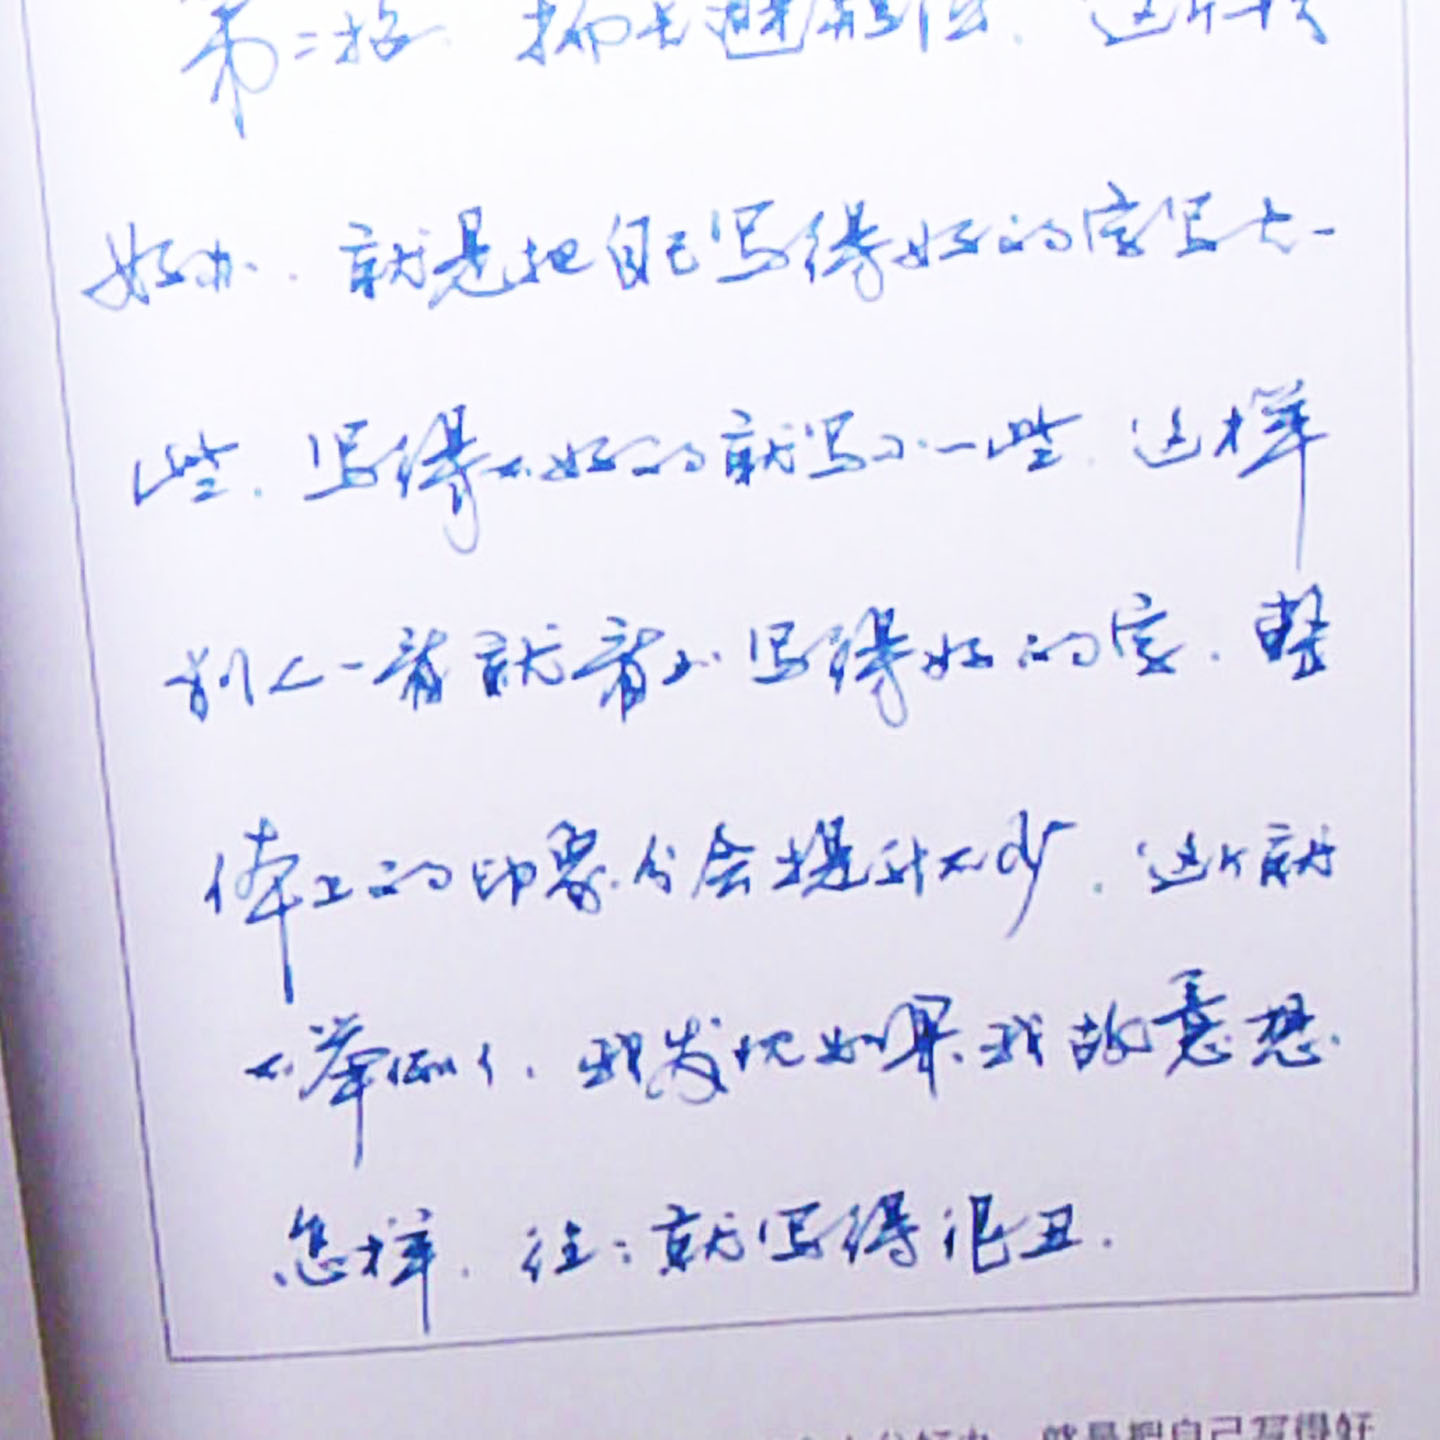 第二招、扬长避短法、这个较
好办、就是把自己写得好的字写大一
些、写得不好的就写小一些、这样
别人一看就看到写得好的字、整
体上的印象分会提升不少、这个就
不举例了、我发现如果我故意想
怎样、往:就写得很丑.
好办，就是把自己写得好